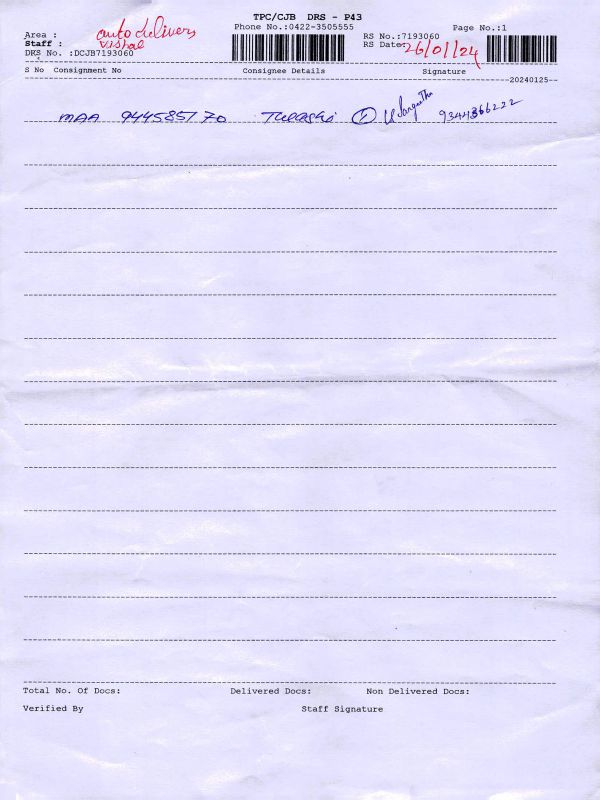 TPC/CJB DRS - P43
Phone No.:0422-3505555
Page No.:1
Area : auto delivery
Staff : Vishal
RS No.:7193060
RS Date: 26/01/24
DRS No. :DCJB7193060
S No Consignment No Consignee Details Signature
20240125
MAA 944585170 Thulashi 9344366222
Total No. Of Docs: Delivered Docs: Non Delivered Docs:
Verified By Staff Signature